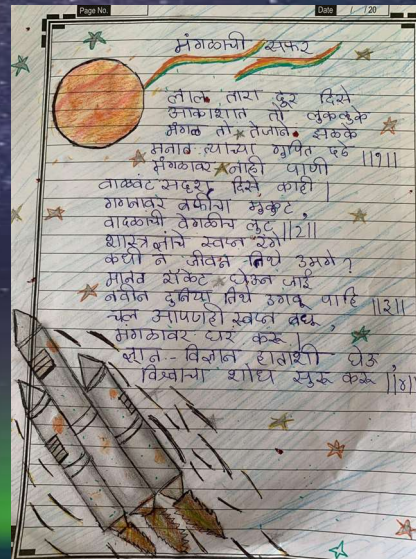 Page No.
Date / / 20
मंगळाची सफर
लाल तारा दूर दिसे
आकाशात तो लुकलुके
मंगळ तो तेजाने झळके
मनात त्याच्या गुपित दडे ||१||
मंगळावर नाही पाणी
वाळवंट सदृश दिसे काही |
गगनावर बर्फाचा मुकुट,
वादळाची वेगळीच लुट ||2||
शास्त्रज्ञांचे स्वप्न रंगे
कधी न जीवन तिथे उमगे ?
मानव रॉकेट घेऊन जाई
नवीन दुनिया तिथे उगवू पाहि ||३||
चल आपणही स्वप्न बघू,
मंगळावर घर करू |
ज्ञान - विज्ञान हाताशी घेऊ,
विश्वाचा शोध सुरू करू ||४||